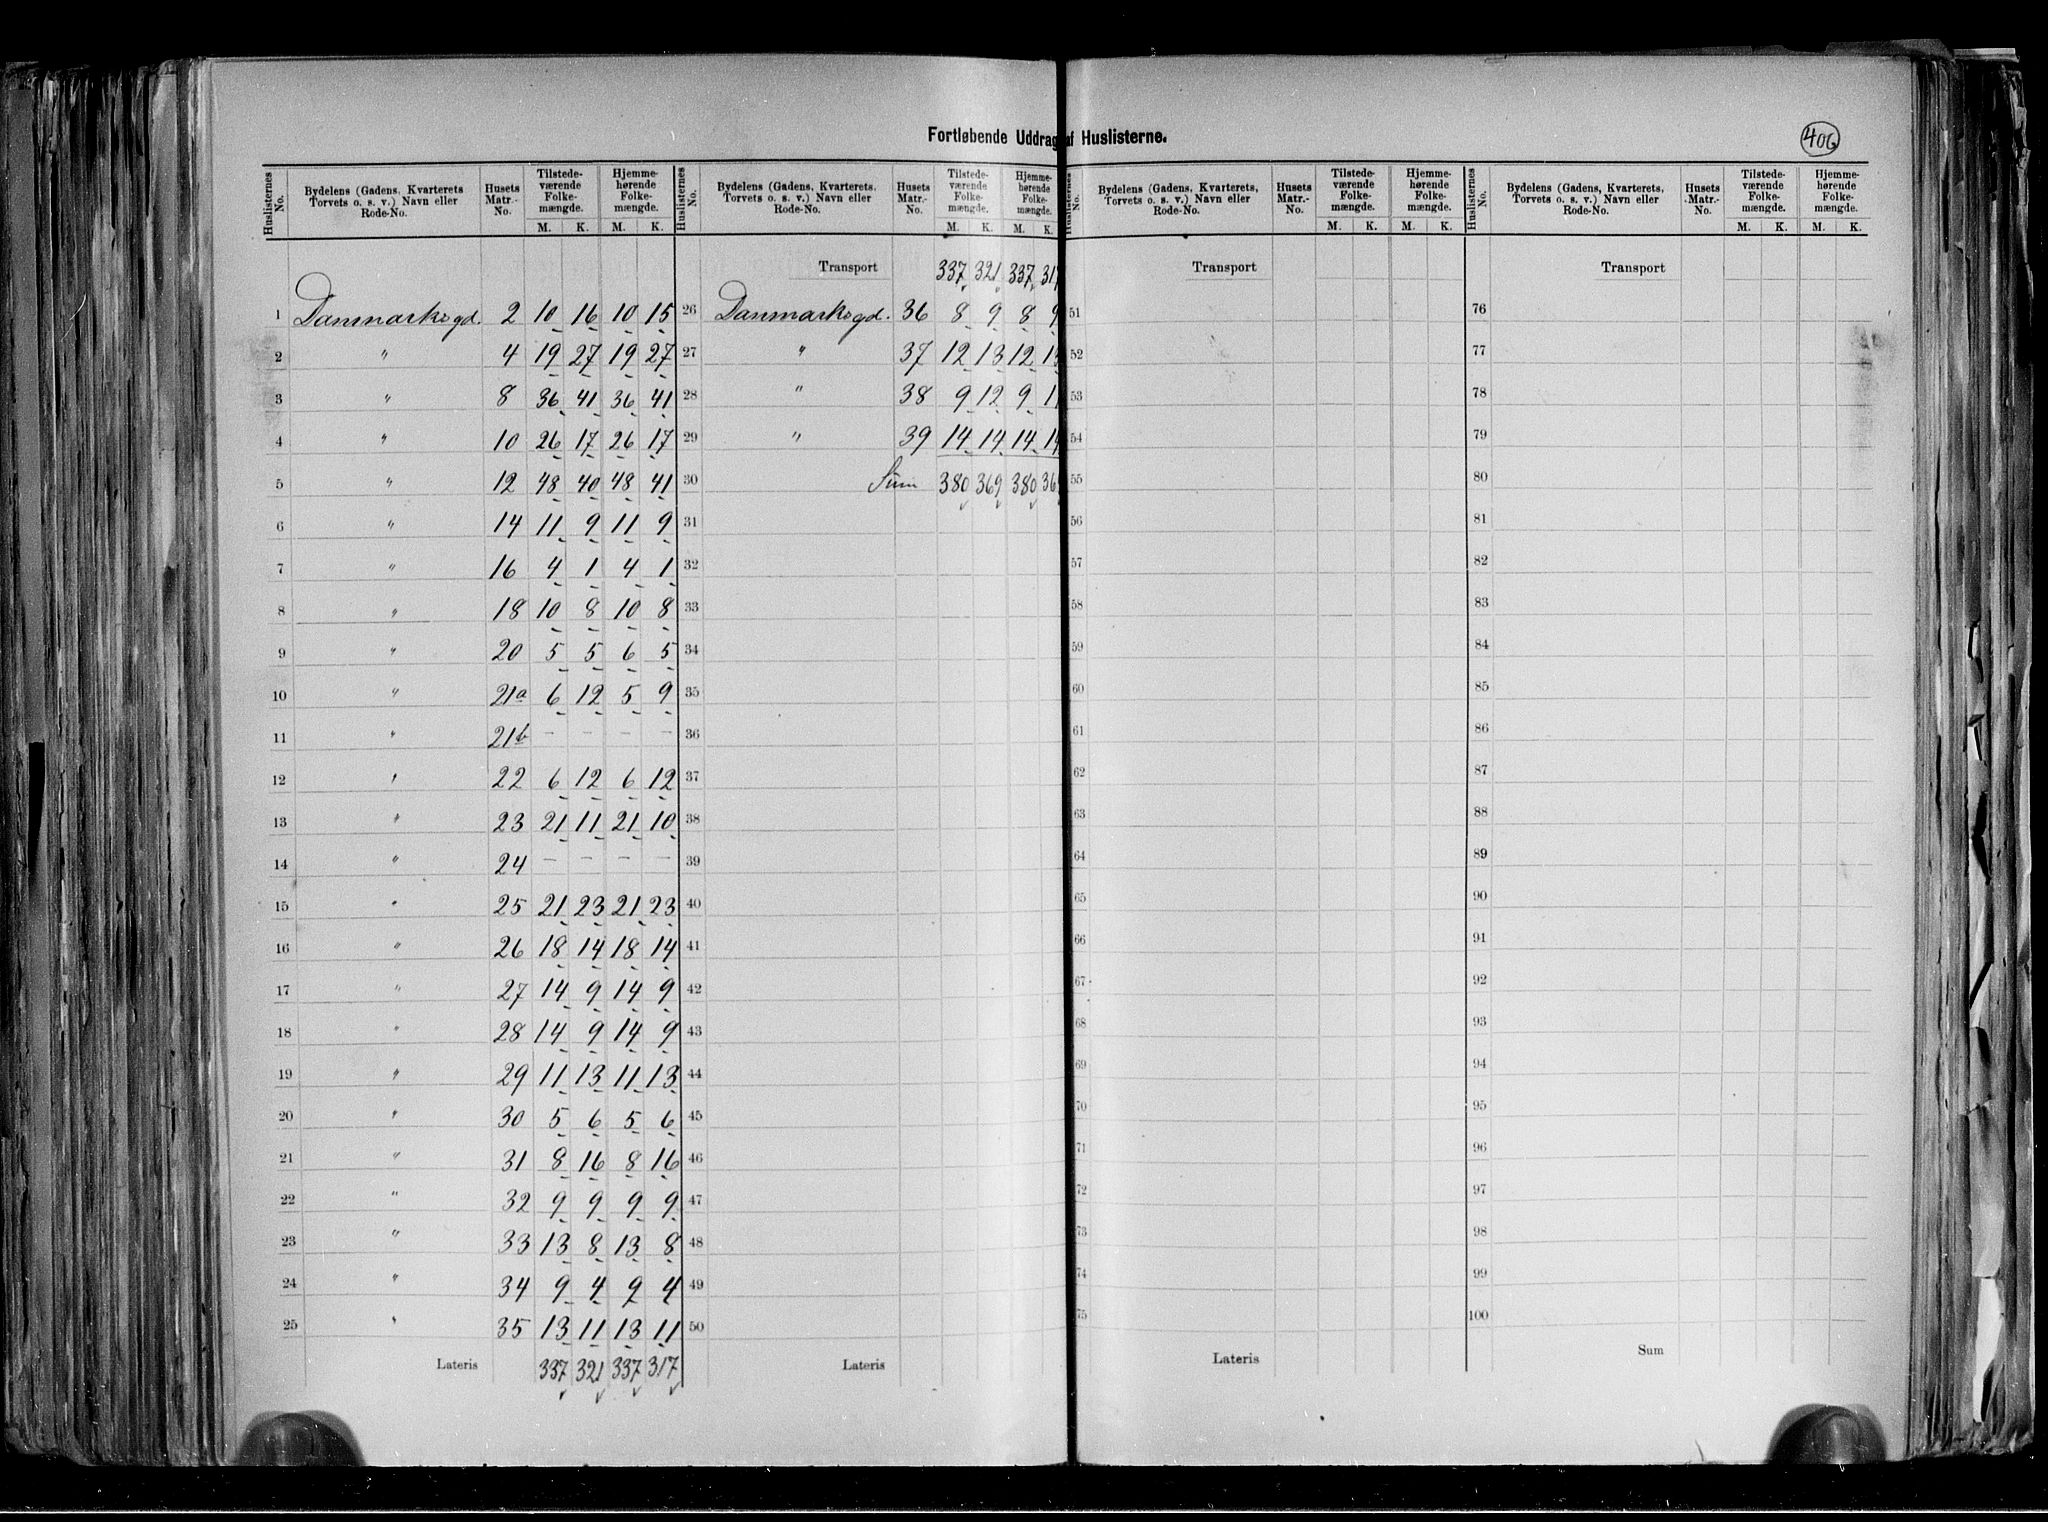 Fortløbende Uddrag af Huslisterne.
406
Huslisternes No. | Bydelens (Gadens, Kvarterets Torvets o. s. v.) Navn eller Rode-No. | Husets Matr.-No. | Tilstede-værende Folke-mængde. M. K. | Hjemme-hørende Folke-mængde. M. K.
1 Danmarksgd. 2 10 16 10 15
2 " 4 19 27 19 27
3 " 8 36 41 36 41
4 " 10 26 17 26 17
5 " 12 48 40 48 41
6 " 14 11 9 11 9
7 " 16 4 1 4 1
8 " 18 10 8 10 8
9 " 20 5 5 6 5
10 " 21a 6 12 5 9
11 " 21b – – – –
12 " 22 6 12 6 12
13 " 23 21 11 21 10
14 " 24 – – – –
15 " 25 21 23 21 23
16 " 26 18 14 18 14
17 " 27 14 9 14 9
18 " 28 14 9 14 9
19 " 29 11 13 11 13
20 " 30 5 6 5 6
21 " 31 8 16 8 16
22 " 32 9 9 9 9
23 " 33 13 8 13 8
24 " 34 9 4 9 4
25 " 35 13 11 13 11
Lateris 337 321 337 317
Huslisternes No. | Bydelens (Gadens, Kvarterets, Torvets o. s. v.) Navn eller Rode-No. | Husets Matr.-No. | Tilstede-værende Folke-mængde. M. K. | Hjemme-hørende Folke-mængde. M. K.
Transport 337 321 337 317
26 Danmarksgd. 36 8 9 8 9
27 " 37 12 13 12 13
28 " 38 9 12 9
29 " 39 14 14 14 14
30 Sum 380 369 380
31
32
33
34
35
36
37
38
39
40
41
42
43
44
45
46
47
48
49
50
Lateris
Huslisternes No. | Bydelens (Gadens, Kvarterets, Torvets o. s. v.) Navn eller Rode-No. | Husets Matr.-No. | Tilstede-værende Folke-mængde. M. K. | Hjemme-hørende Folke-mængde. M. K.
Transport
51
52
53
54
55
56
57
58
59
60
61
62
63
64
65
66
67
68
69
70
71
72
73
74
75
Lateris
Huslisternes No. | Bydelens (Gadens, Kvarterets, Torvets o. s. v.) Navn eller Rode-No. | Husets Matr.-No. | Tilstede-værende Folke-mængde. M. K. | Hjemme-hørende Folke-mængde. M. K.
Transport
76
77
78
79
80
81
82
83
84
85
86
87
88
89
90
91
92
93
94
95
96
97
98
99
100
Sum